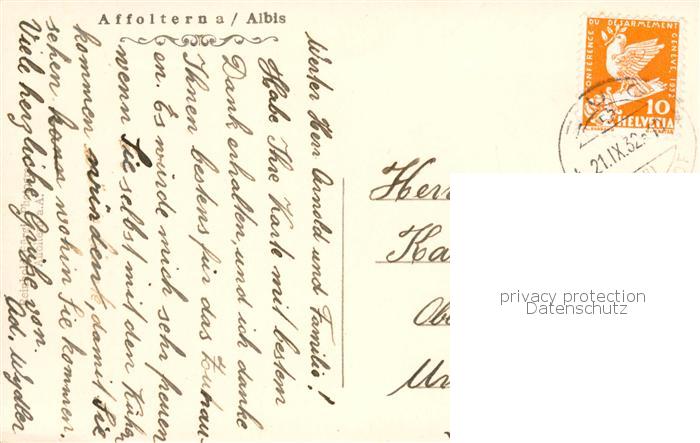 Affoltern a/ Albis
Werter Herr Arnold und Familie!
Habe Ihre Karte mit bestem
Dank erhalten, und ich danke
Ihnen bestens für das Zuhau-
en. Es würde mich sehr freuen
wenn Sie selbst mit den Kühen
kommen würden, damit Sie
sehen wohin Sie kommen.
Viele herzliche Grüße von.
Ad. Wydler
CONFÉRENCE DU DÉSARMEMENT GENÈVE 1932
10
HELVETIA
21.IX.32
Herr
Ka
Obe
privacy protection
Datenschutz